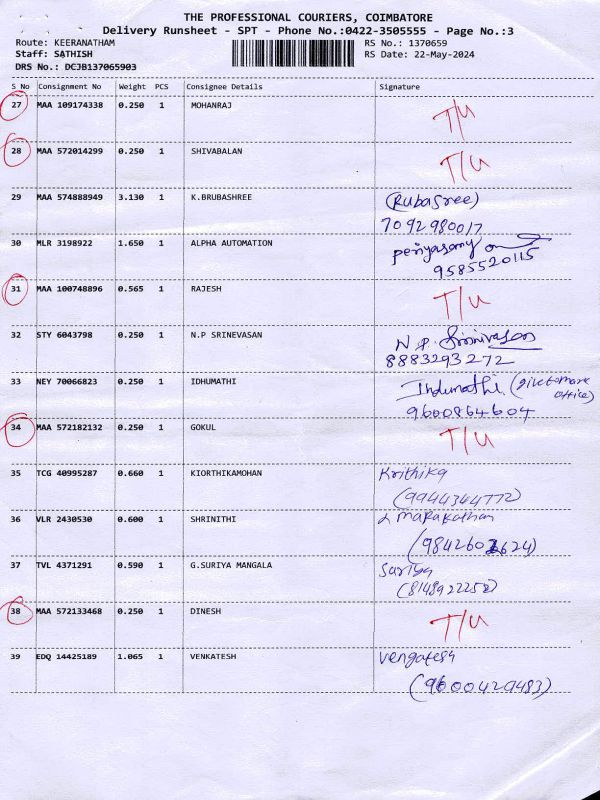 THE PROFESSIONAL COURIERS, COIMBATORE
Delivery Runsheet - SPT - Phone No.:0422-3505555 - Page No.:3
Route: KEERANATHAM RS No.: 1370659
Staff: SATHISH RS Date: 22-May-2024
DRS No.: DCJB137065903
S No Consignment No Weight PCS Consignee Details Signature
27 MAA 109174338 0.250 1 MOHANRAJ T/U
28 MAA 572014299 0.250 1 SHIVABALAN T/U
29 MAA 574888949 3.130 1 K.BRUBASHREE (Rubasree)
7092980017
30 MLR 3198922 1.650 1 ALPHA AUTOMATION periyasamy
9585520115
31 MAA 100748896 0.565 1 RAJESH T/U
32 STY 6043798 0.250 1 N.P SRINEVASAN N.P. Srinivasan
8883293272
33 NEY 70066823 0.250 1 IDHUMATHI Indumathi (
office)
9600864604
34 MAA 572182132 0.250 1 GOKUL T/U
35 TCG 40995287 0.660 1 KIORTHIKAMOHAN Krithika
(9944344772)
36 VLR 2430530 0.600 1 SHRINITHI marakathan
(9842602624)
37 TVL 4371291 0.590 1 G.SURIYA MANGALA Suriya
(8148922252)
38 MAA 572133468 0.250 1 DINESH T/U
39 EDQ 14425189 1.065 1 VENKATESH Vengatesh
(9600429483)